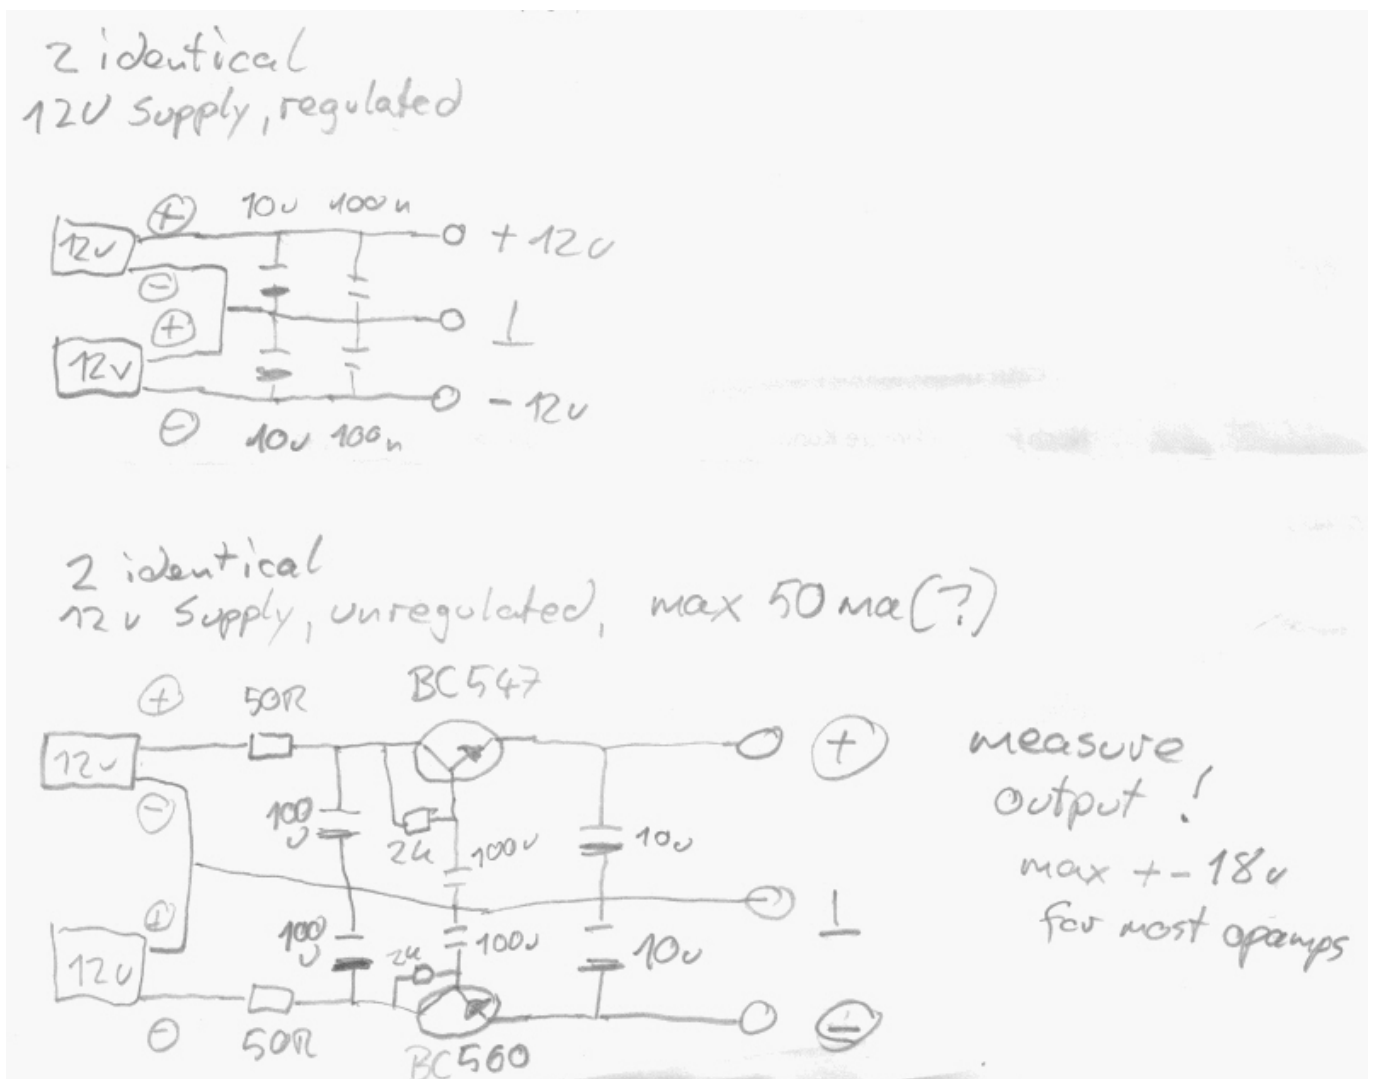 2 identical
12V supply, regulated
+
10u 100n
12v
+12v
-
+
⊥
12v
-12v
-
10u 100n
2 identical
12v supply, unregulated, max 50ma(?)
BC547
+
50R
12v
+
measure
output!
-
100u
2k
100u
10u
max +-18v
+
⊥
for most opamps
100u
2k
100u
10u
12v
-
50R
-
BC560